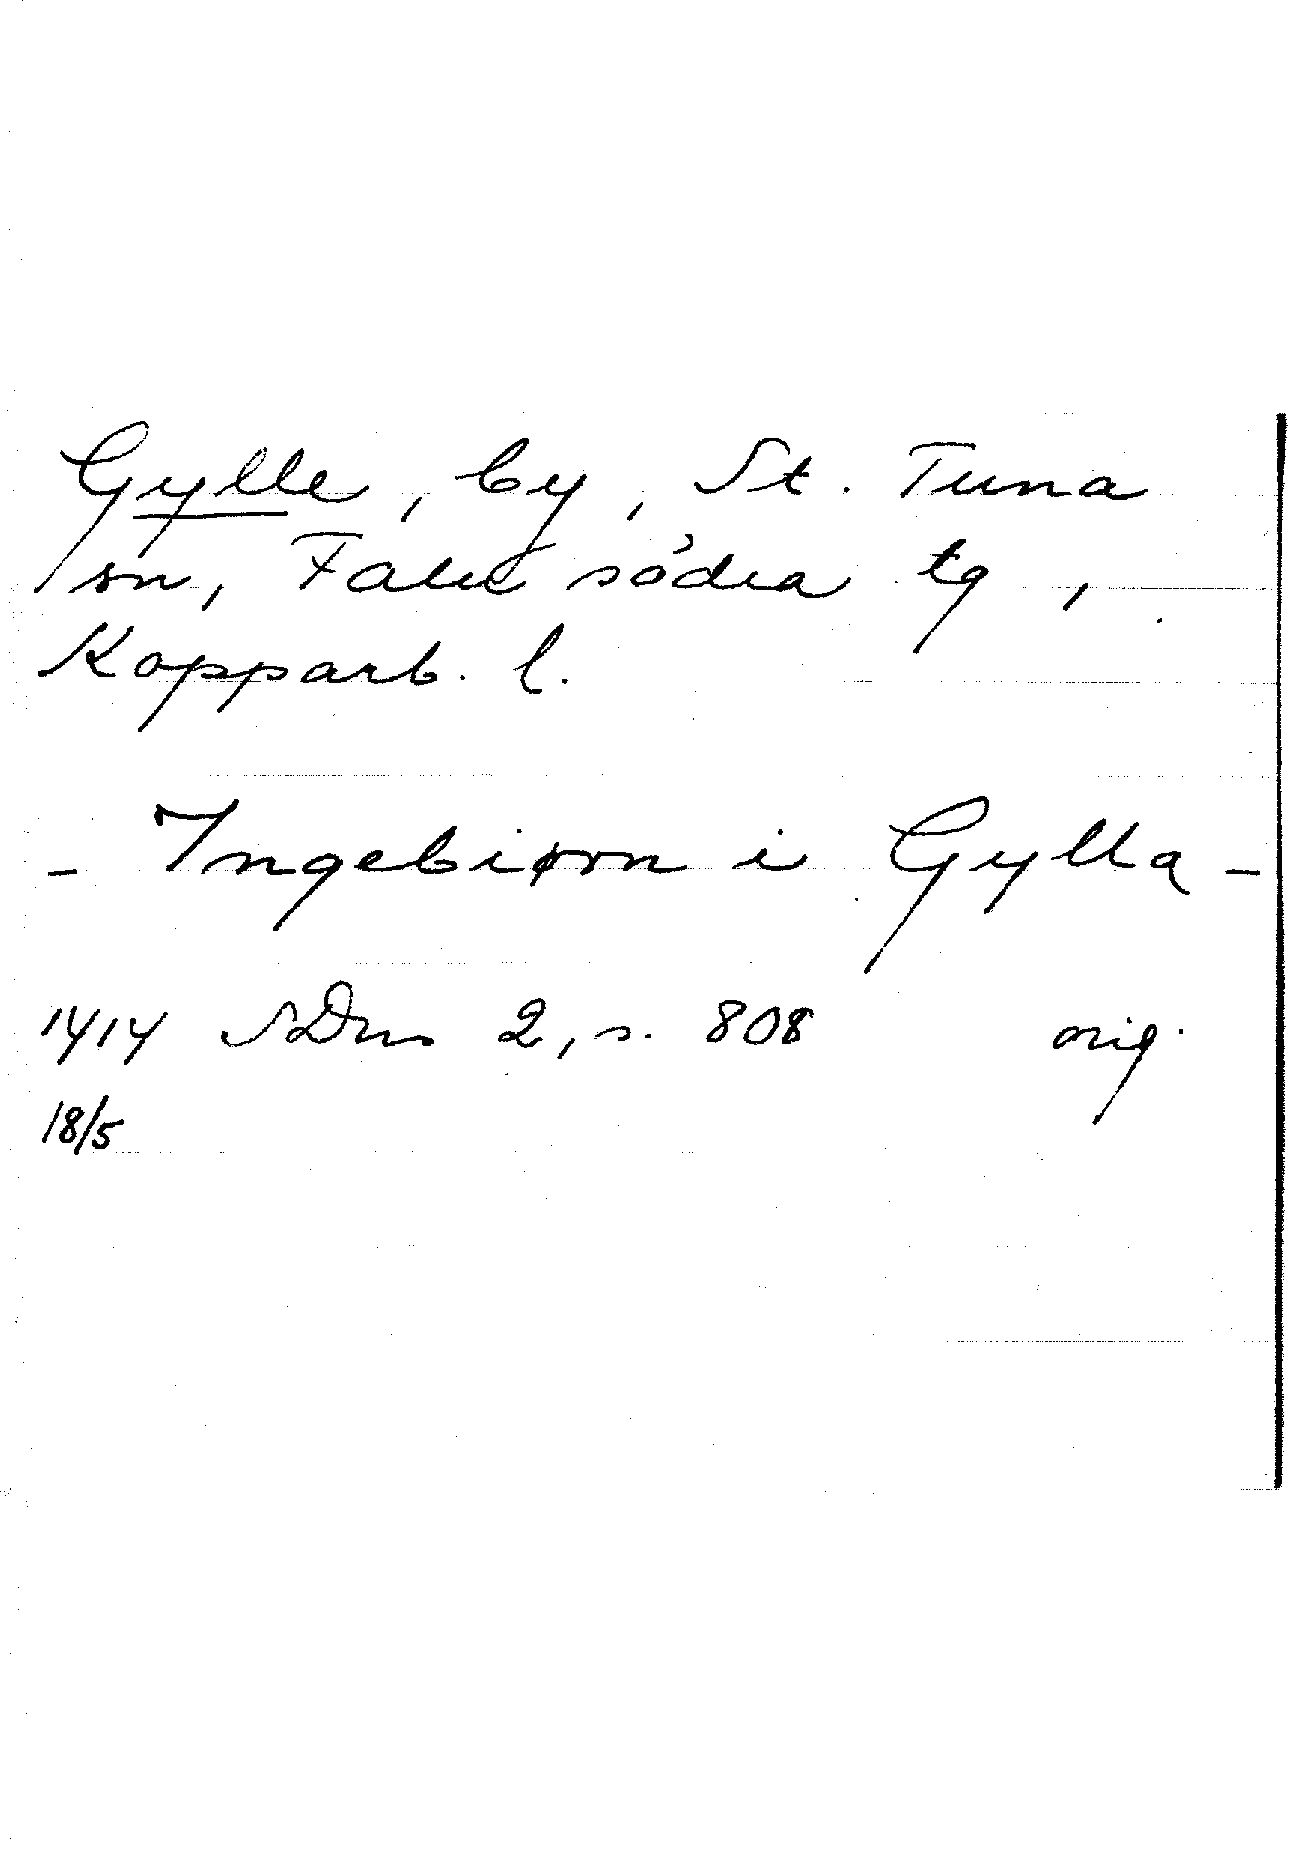 Gylle, by, St. Tuna
sn, Falu södra tg,
Kopparb. l.
- Ingebiørn i Gylla -
1414 SDns 2, s. 808 orig.
18/5